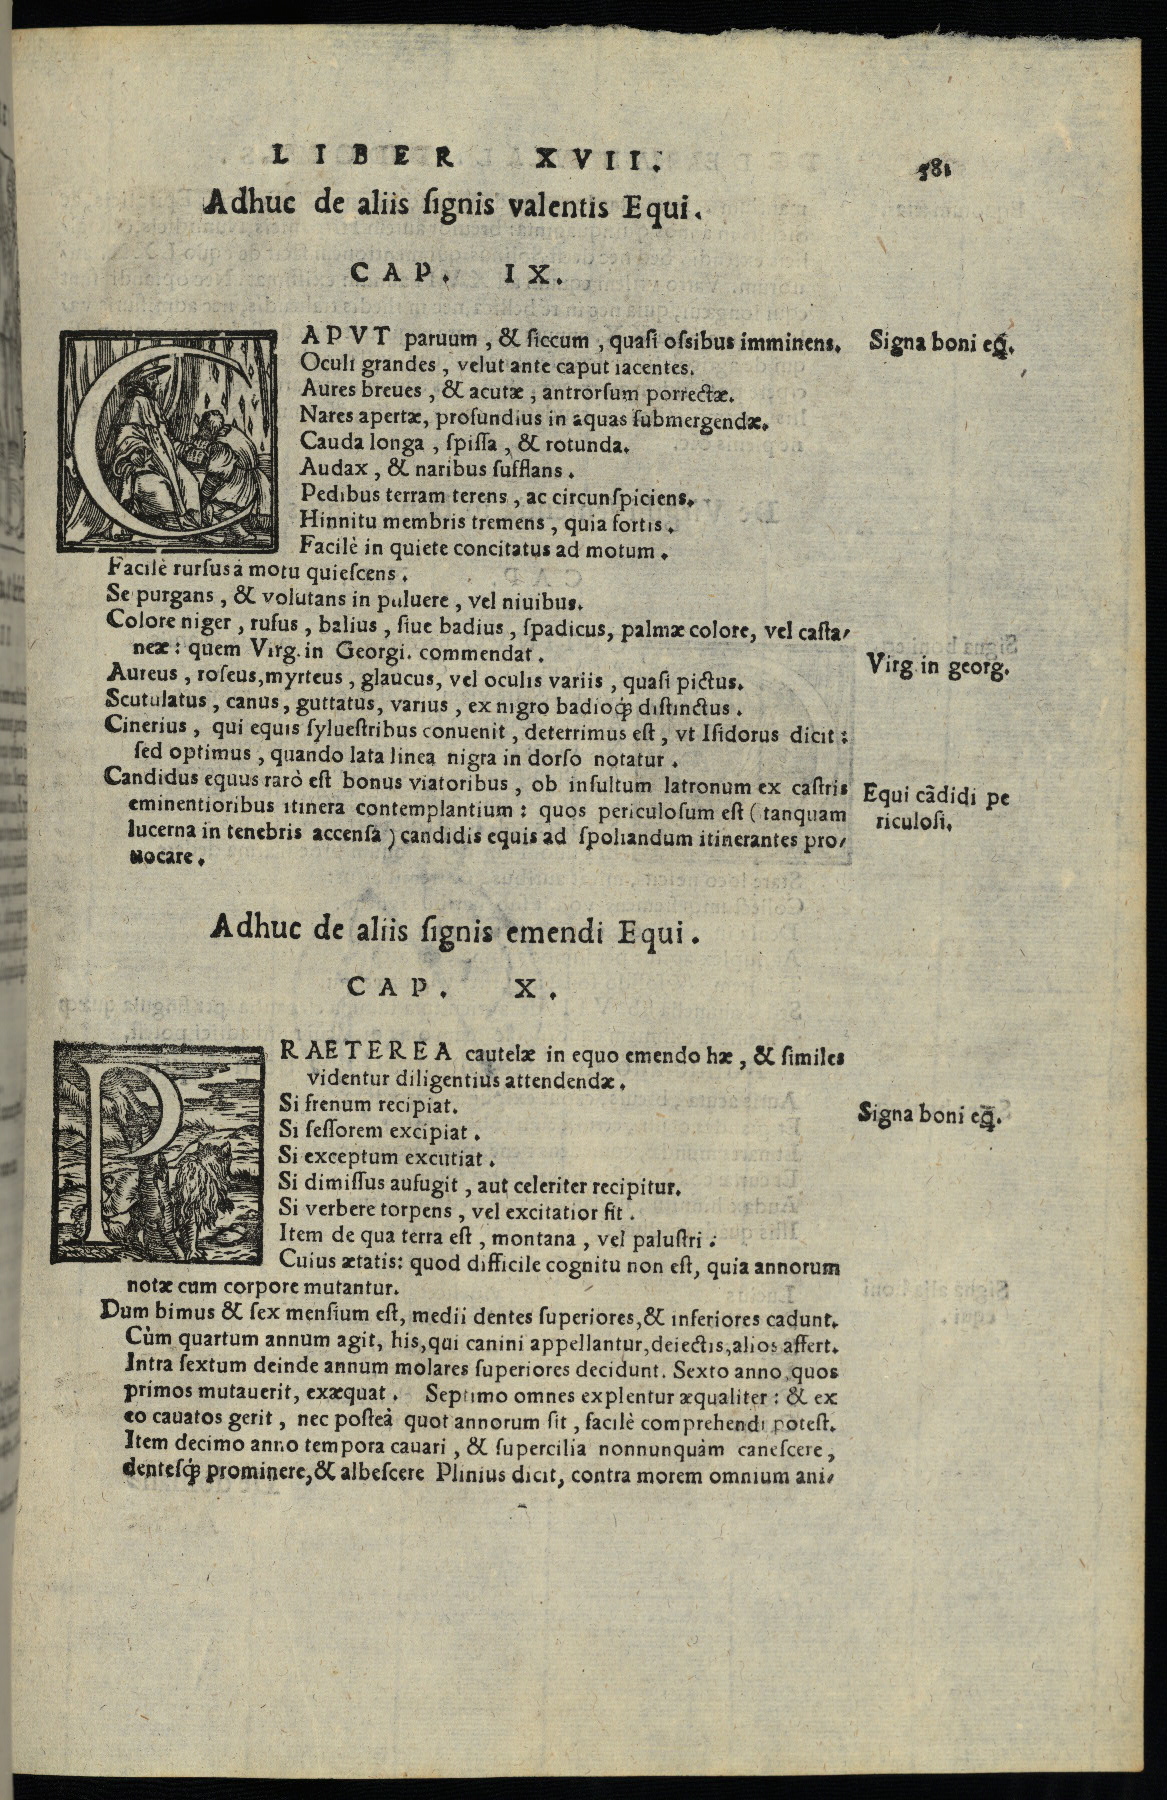 LIBER XVII. 581
Adhuc de aliis ſignis valentis Equi.
CAP. IX.
CAPVT paruum, & ſiccum, quaſi oſsibus imminens.
Signa boni eq̃.
Oculi grandes, velut ante caput iacentes.
Aures breues, & acutæ, antrorſum porrectæ.
Nares apertæ, profundius in aquas ſubmergendæ.
Cauda longa, ſpiſſa, & rotunda.
Audax, & naribus ſufflans.
Pedibus terram terens, ac circunſpiciens.
Hinnitu membris tremens, quia fortis.
Facilè in quiete concitatus ad motum.
Facilè rurſus à motu quieſcens.
Se purgans, & volutans in puluere, vel niuibus.
Colore niger, rufus, balius, ſiue badius, ſpadicus, palmæ colore, vel caſta-
neæ: quem Virg. in Georgi. commendat.
Virg. in georg.
Aureus, roſeus, myrteus, glaucus, vel oculis variis, quaſi pictus.
Scutulatus, canus, guttatus, varius, ex nigro badioq́; diſtinctus.
Cinerius, qui equis ſylueſtribus conuenit, deterrimus eſt, vt Iſidorus dicit:
ſed optimus, quando lata linea nigra in dorſo notatur.
Candidus equus rarò eſt bonus viatoribus, ob inſultum latronum ex caſtris
Equi cãdidi pe
eminentioribus itinera contemplantium: quos periculoſum eſt (tanquam
riculoſi.
lucerna in tenebris accenſa) candidis equis ad ſpoliandum itinerantes pro-
uocare.
Adhuc de aliis ſignis emendi Equi.
CAP. X.
PRAETEREA cautelæ in equo emendo hæ, & ſimiles
videntur diligentius attendendæ.
Si frenum recipiat.
Signa boni eq̃.
Si ſeſſorem excipiat.
Si exceptum excutiat.
Si dimiſſus aufugit, aut celeriter recipitur.
Si verbere torpens, vel excitatior fit.
Item de qua terra eſt, montana, vel paluſtri.
Cuius ætatis: quod difficile cognitu non eſt, quia annorum
notæ cum corpore mutantur.
Dum bimus & ſex menſium eſt, medii dentes ſuperiores, & inferiores cadunt.
Cùm quartum annum agit, his, qui canini appellantur, deiectis, alios affert.
Intra ſextum deinde annum molares ſuperiores decidunt. Sexto anno, quos
primos mutauerit, exæquat. Septimo omnes explentur æqualiter: & ex
eo cauatos gerit, nec poſteà quot annorum ſit, facilè comprehendi poteſt.
Item decimo anno tempora cauari, & ſupercilia nonnunquàm caneſcere,
denteſq́; prominere, & albeſcere Plinius dicit, contra morem omnium ani-